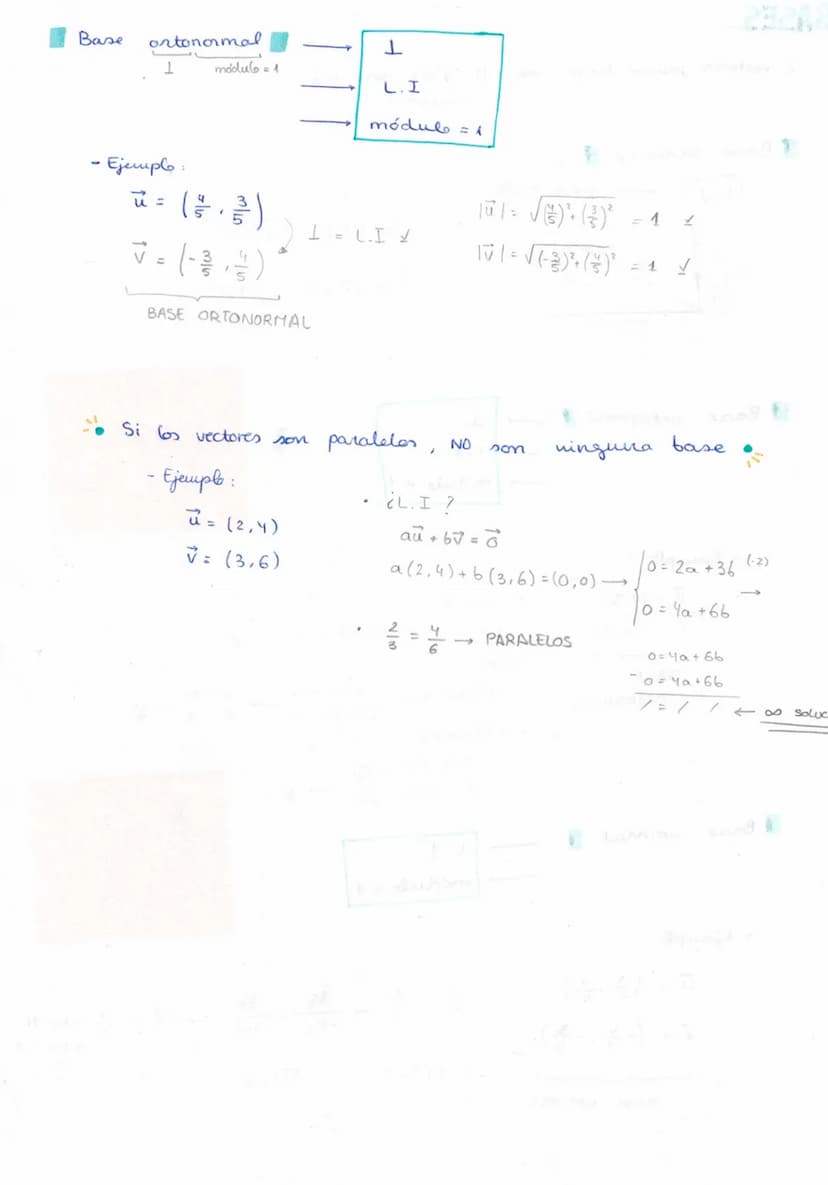 Base ortonormal → ⊥
⊥ módulo = 1
→ L.I
→ módulo = 1
- Ejemplo:
u⃗ = (4/5, 3/5)
v⃗ = (-3/5, 4/5)
⊥ = L.I ✓
BASE ORTONORMAL
|u⃗| = √(4/5)² + (3/5)² = 1 ✓
|v⃗| = √(-3/5)² + (4/5)² = 1 ✓
Si los vectores son paralelos, NO son ninguna base
- Ejemplo:
u⃗ = (2,4)
v⃗ = (3,6)
• ¿L.I?
au⃗ + bv⃗ = o⃗
a(2,4) + b(3,6) = (0,0) →
0 = 2a + 3b (·2) →
0 = 4a + 6b
0 = 4a + 6b
- 0 = 4a + 6b
/ = / / ← ∞ soluc
• 2/3 = 4/6 → PARALELOS